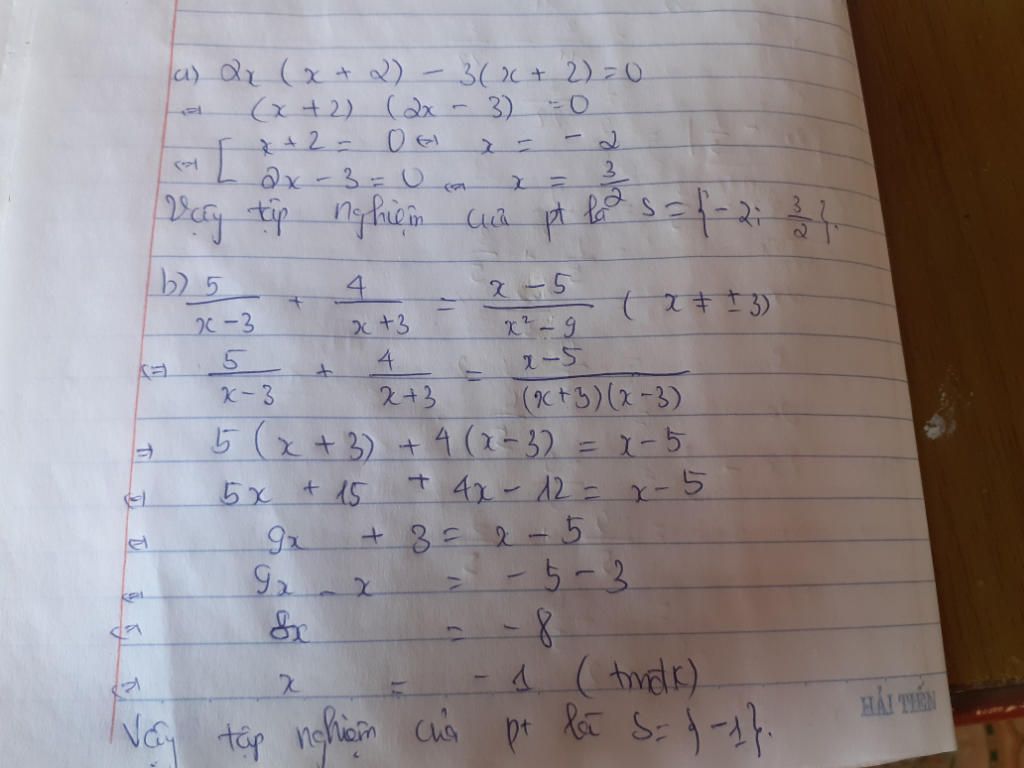 a) 2x (x + 2) - 3(x + 2) = 0
⇔ (x + 2) (2x - 3) = 0
⇔ [ x + 2 = 0 ⇔ x = - 2
2x - 3 = 0 ⇔ x = 3/2
Vậy tập nghiệm của pt là S = {-2; 3/2}.
b) 5/(x - 3) + 4/(x + 3) = (x - 5)/(x² - 9) ( x ≠ ± 3)
⇔ 5/(x - 3) + 4/(x + 3) = (x - 5)/((x + 3)(x - 3))
⇒ 5 (x + 3) + 4 (x - 3) = x - 5
⇔ 5x + 15 + 4x - 12 = x - 5
⇔ 9x + 3 = x - 5
⇔ 9x - x = - 5 - 3
⇔ 8x = - 8
⇔ x = - 1 (tmđk)
HẢI TIẾN
Vậy tập nghiệm của pt là S = {-1}.